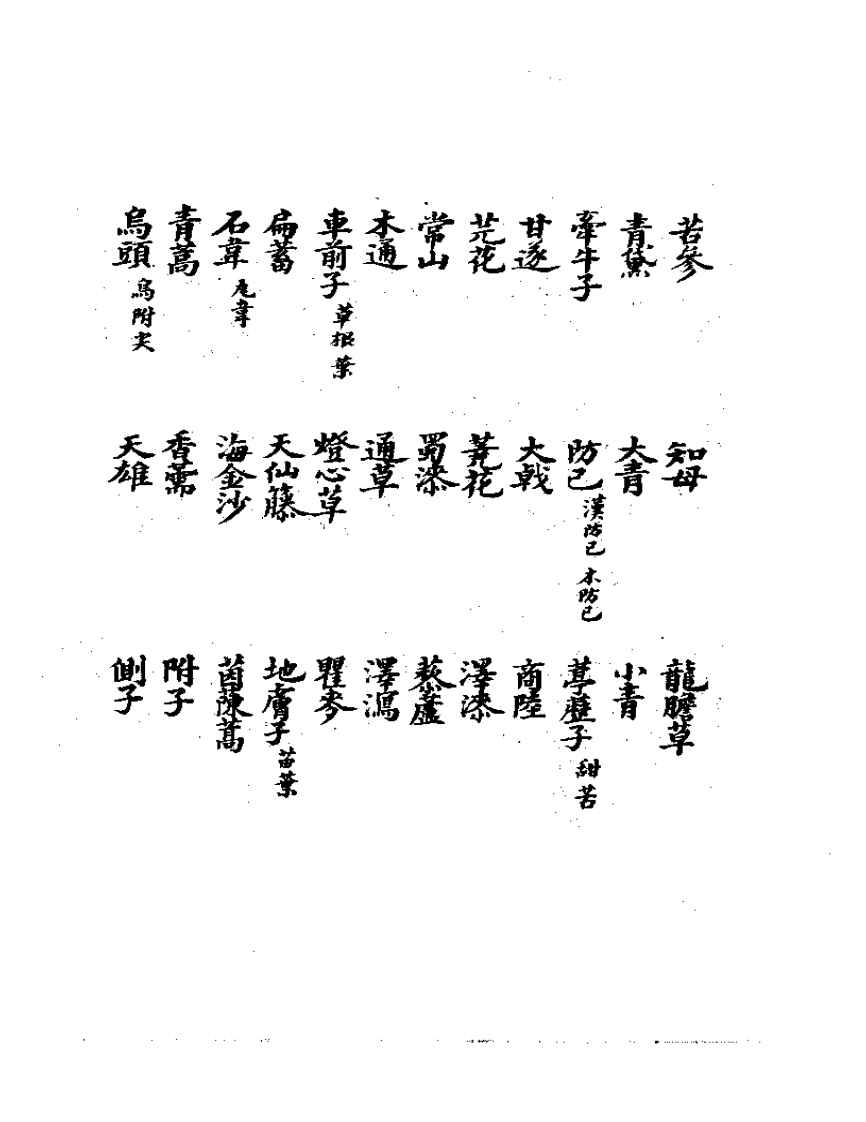 苦參 知母 龍膽草
青黛 大青 小青
牽牛子 防已 漢防已 木防已 葶藶子 甜苦
甘遂 大戟 商陸
芫花 蕘花 澤漆
常山 蜀漆 藜蘆
木通 通草 澤瀉
車前子 草根葉 燈心草 瞿麥
扁蓄 天仙藤 地膚子 苗葉
石韋 瓦韋 海金沙 茵陳蒿
青蒿 香薷 附子
烏頭 烏附尖 天雄 側子